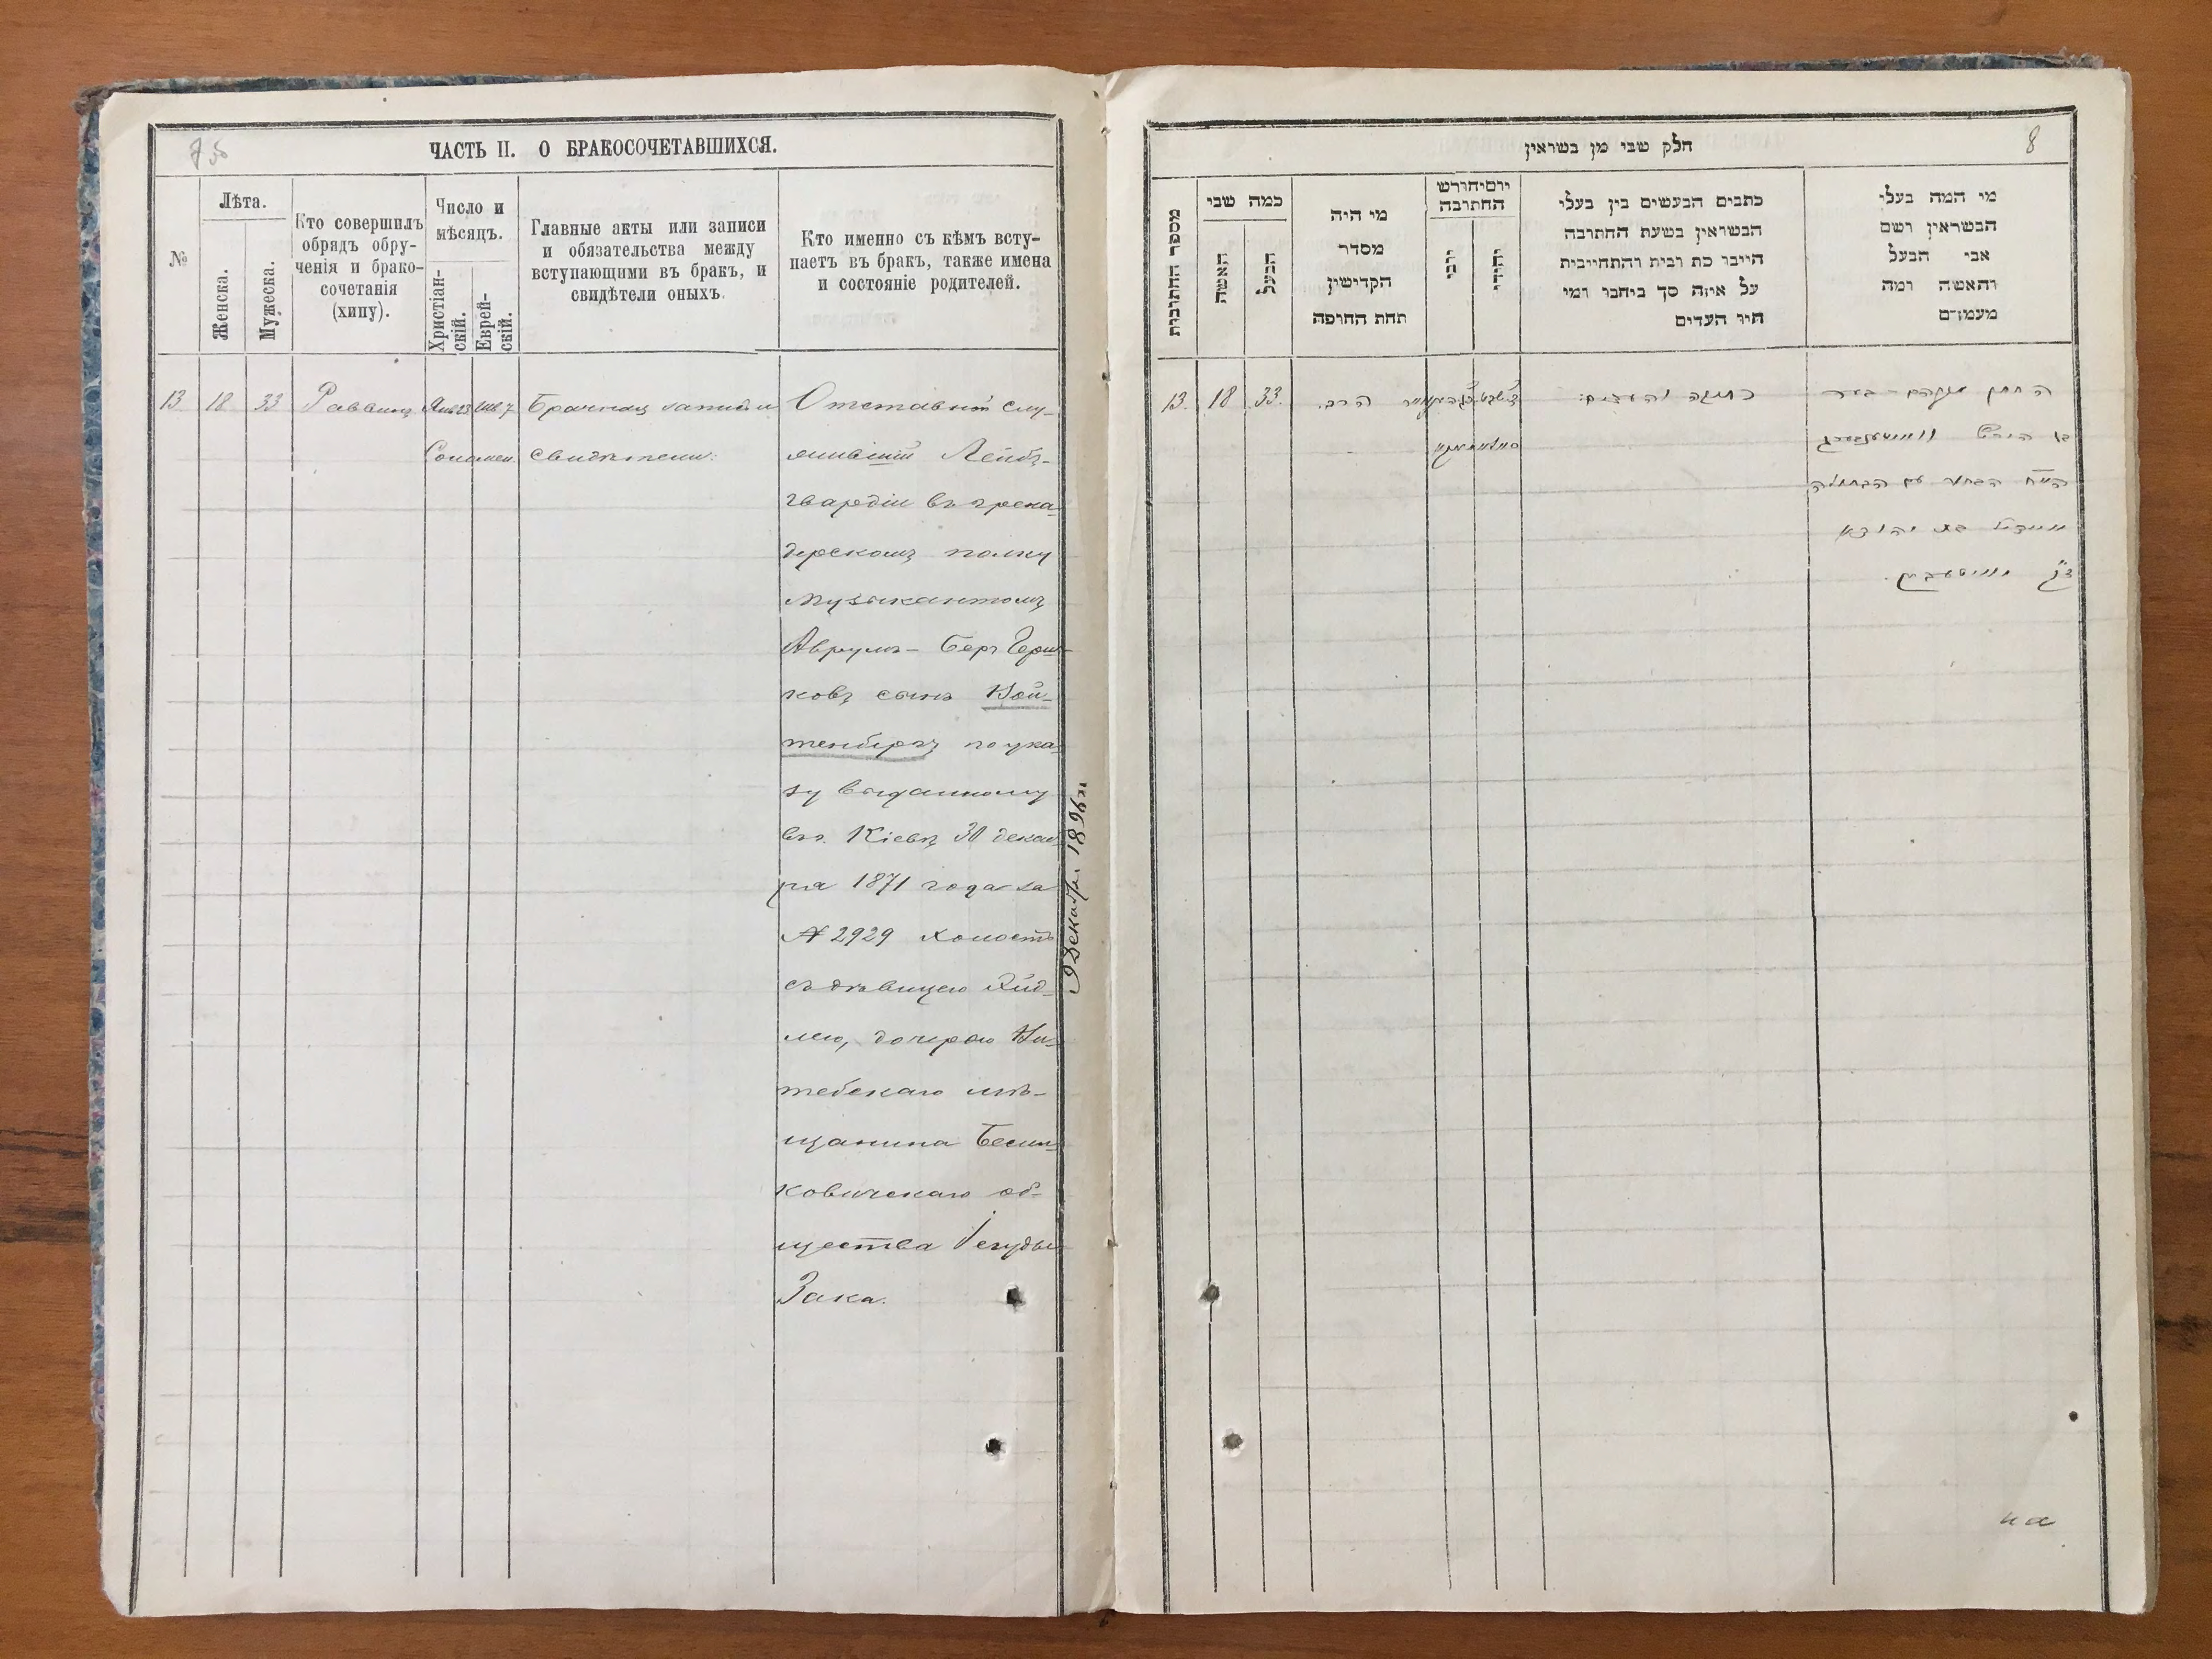 ЧАСТЬ II. О БРАКОСОЧЕТАВШИХСЯ.
№
Лѣта.
Женска.
Мужеска.
Кто совершилъ
обрядъ обру-
ченія и брако-
сочетанія
(хипу).
Число и
мѣсяцъ.
Христіан-
скій.
Еврей-
скій.
Главные акты или записи
и обязательства между
вступающими въ бракъ, и
свидѣтели оныхъ.
Кто именно съ кѣмъ всту-
паетъ въ бракъ, также имена
и состояніе родителей.
13
18
33
Раввинъ
Янв 23
Шв 7
Брачная запись и
свидѣтели:
Отставной слу-
жившій Лейбъ-
гвардіи въ грена-
дерскомъ полку
музыкантомъ
Аврумъ-Беръ Герш-
ковъ сынъ Вой-
тенбергъ по ука-
зу выданному
въ г. Кіевѣ 30 декаб
ря 1871 года за
№ 2929 холостъ
съ дѣвицею Эйд-
лею, дочерью Ви-
тебскаго мѣ-
щанина Бешен-
ковичскаго об-
щества Іегуды
Зака.
9 Декабря 1896 г.
חלק שני מן נשואין
8
מספר החתונות
כמה שני
האשה
הבעל
מי היה
מסדר
הקדישין
תחת החופה
יום וחודש
החתונה
כתבים הנעשים בין בעלי
הנשואין בשעת החתונה
היינו כת ובית והתחייבית
על איזה סך ביחבו ומי
היו העדים
מי המה בעלי
הנשואין ושם
אבי הבעל
והאשה ומה
מעמדם
13.
18
33.
הרב.
כתובה והעדים:
החתן אברהם-בער
בן הירש
עם הבתולה
איידל בת יהודא
זק